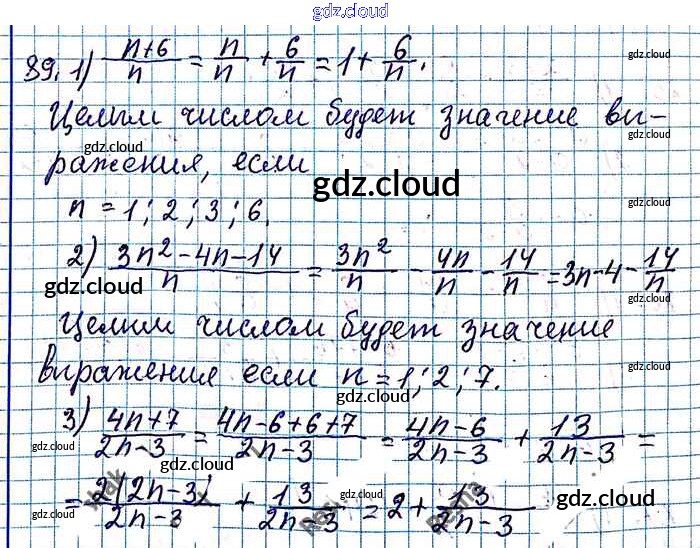 gdz.cloud
89. 1) (n+6)/n = n/n + 6/n = 1 + 6/n.
gdz.cloud
Целым числом будет значение вы-
gdz.cloud gdz.cloud
ражения, если
gdz.cloud
n = 1; 2; 3; 6.
gdz.cloud gdz.cloud
2) (3n²-4n-14)/n = 3n²/n - 4n/n - 14/n = 3n-4-14/n
gdz.cloud gdz.cloud
Целым числом будет значение
выражения если n = 1; 2; 7.
gdz.cloud
3) (4n+7)/(2n-3) = (4n-6+6+7)/(2n-3) = (4n-6)/(2n-3) + 13/(2n-3) =
gdz.cloud gdz.cloud gdz.cloud
= 2(2n-3)/(2n-3) + 13/(2n-3) = 2 + 13/(2n-3)
gdz.cloud gdz.cloud gdz.cloud gdz.cloud